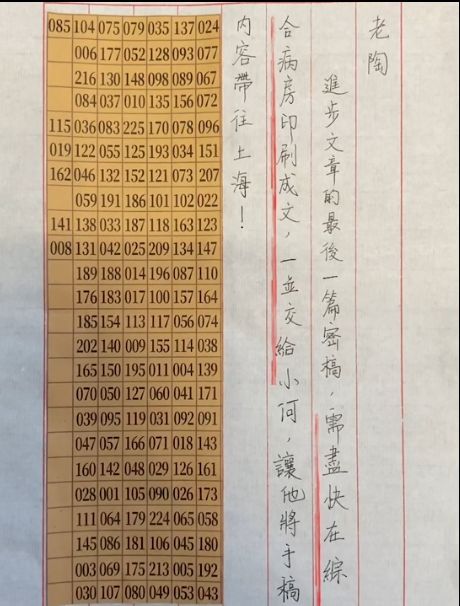 老陶
進步文章的最後一篇密稿，需盡快在綜
合病房印刷成文，一並交給小河，讓他將手稿
內容帶往上海！
085 104 075 079 035 137 024
006 177 052 128 093 077
216 130 148 098 089 067
084 037 010 135 156 072
115 036 083 225 170 078 096
019 122 055 125 193 034 151
162 046 132 152 121 073 207
059 191 186 101 102 022
141 138 033 187 118 163 123
008 131 042 025 209 134 147
189 188 014 196 087 110
176 183 017 100 157 164
185 154 113 117 056 074
202 140 009 155 114 038
165 150 195 011 004 139
070 050 127 060 041 171
039 095 119 031 092 091
047 057 166 071 018 143
160 142 048 029 126 161
028 001 105 090 026 173
111 064 179 224 065 058
145 086 181 106 045 180
003 069 175 213 005 192
030 107 080 049 053 043